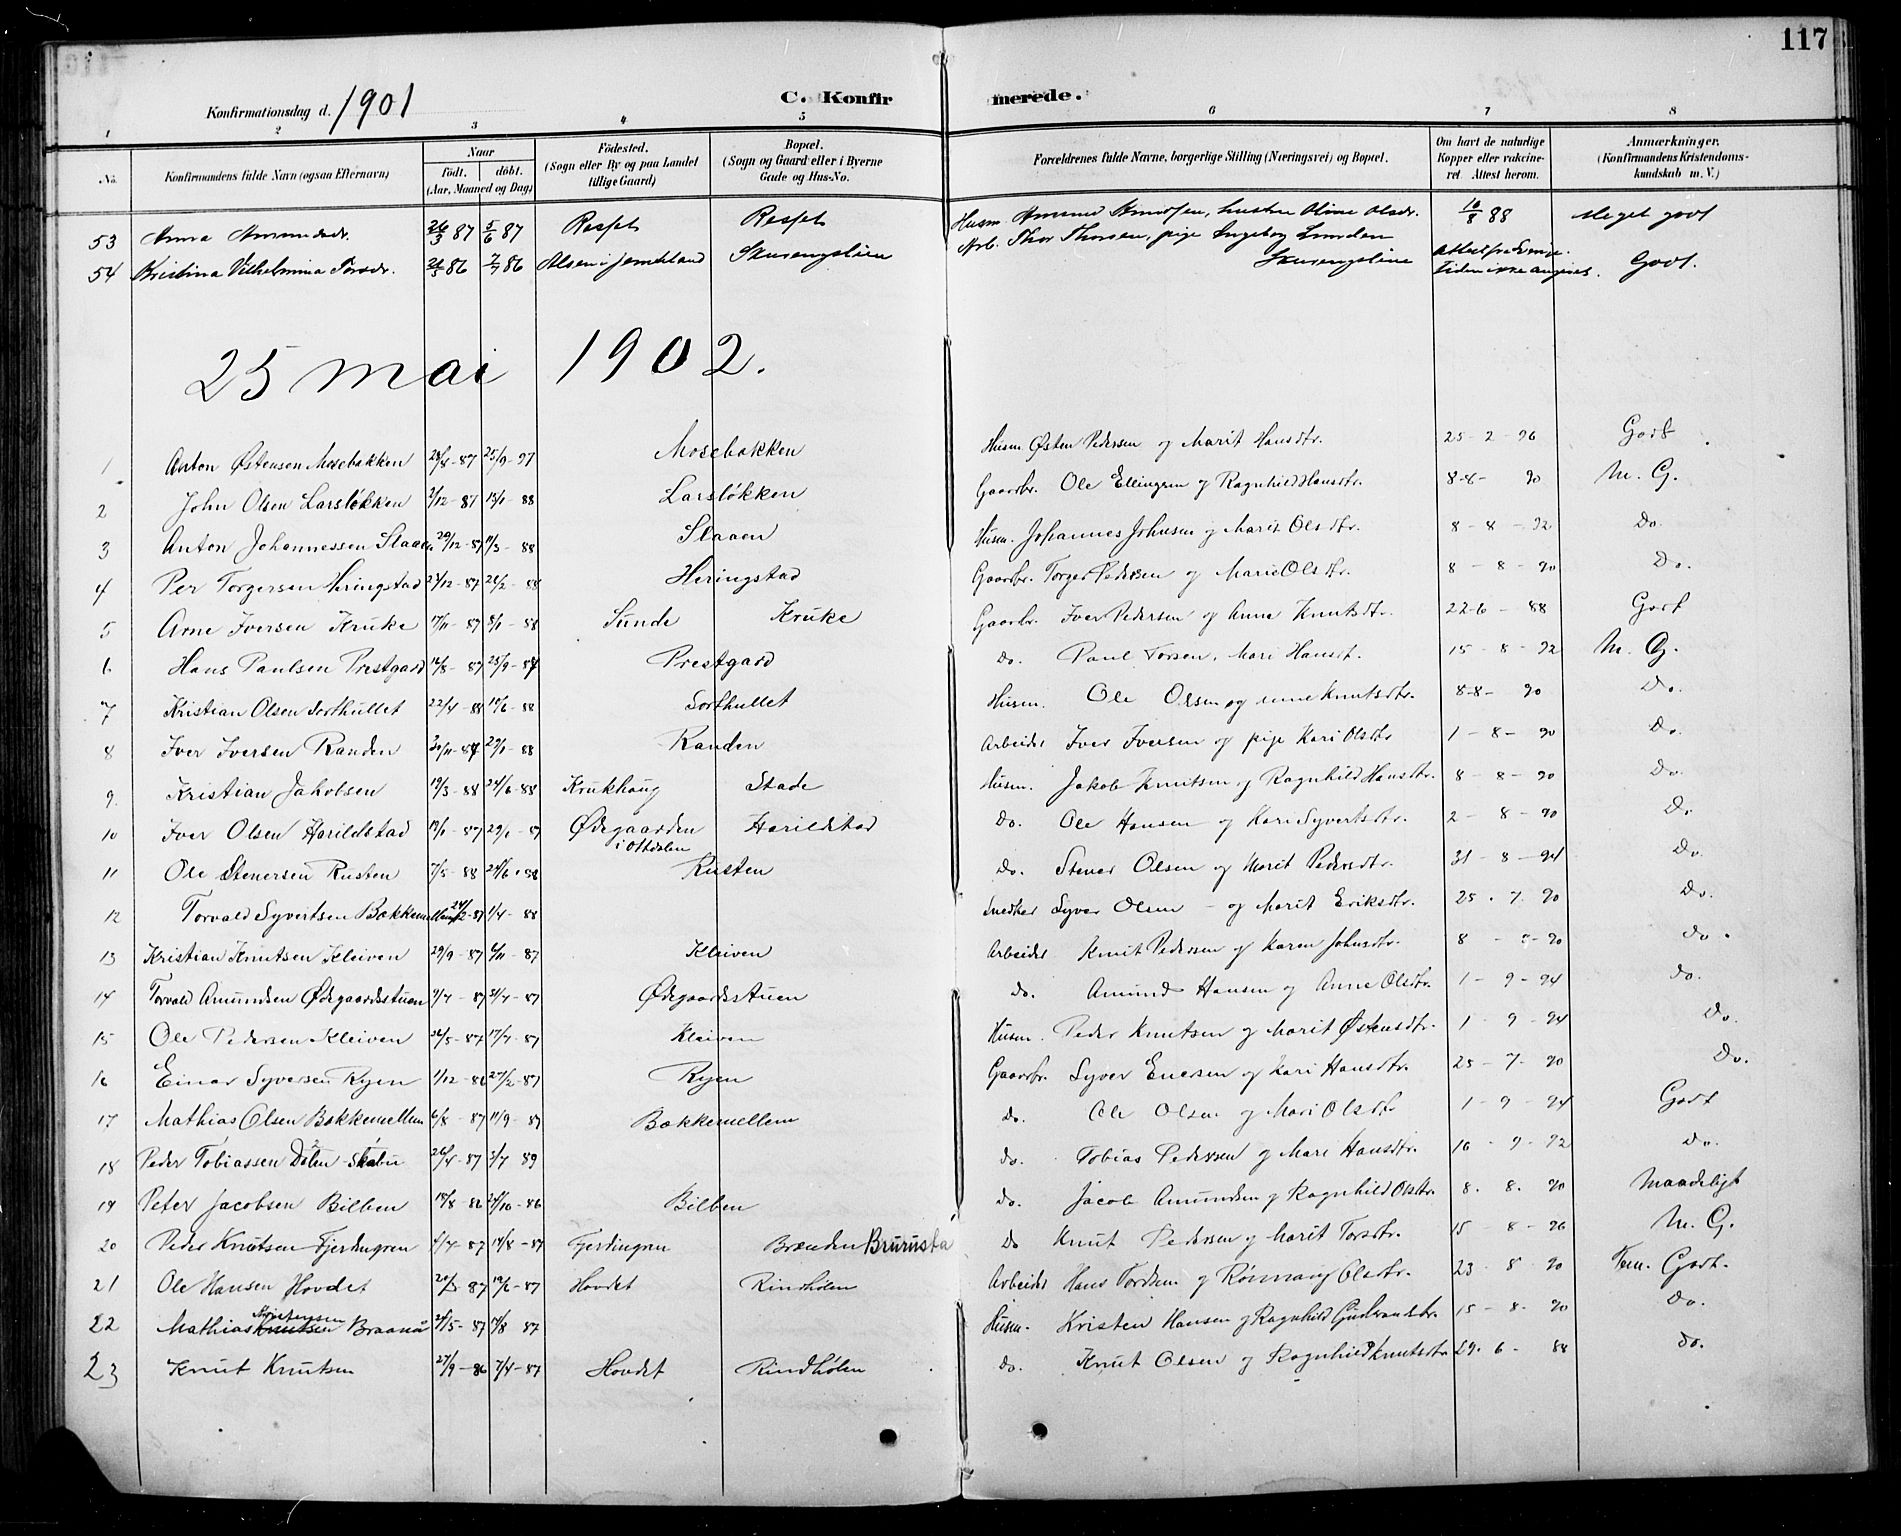 117
Konfirmationsdag d. 1901
C. Konfirmerede.
1 2 3 4 5 6 7 8
No. Konfirmandens fulde Navn (ogsaa Efternavn) Naar födt. döbt. (Aar, Maaned og Dag) Födested. (Sogn eller By og paa Landet tillige Gaard) Bopæl. (Sogn og Gaard eller i Byerne Gade og Hus-No. Forældrenes fulde Navne, borgerlige Stilling (Næringsvei) og Bopæl. Om havt de naturlige Kopper eller vakcineret. Attest herom. Anmærkninger. (Konfirmandens Kristendomskundskab m. V.)
53 Anna Amundsdr. 26/3 87 5/6 87 Husm. Amund hustru Oline Olsdr. 10/8 88 Meget godt
54 Kristina Vilhelmina Torsdr. 86 86 Alsen i Jemtland Arb. Thor Thorsen, pige Ingeborg Godt.
25 mai 1902.
1 Anton Østensen Mosebakken 25/9 Mosebakken Husm. Østen Pedersen og Marit Hansdtr. 25-2-96 Godt
2 John Olsen Larsløkken /12-87 -88 Larsløkken Gaardbr. Ole Ellingsen og Ragnhild Hansdtr. 8-8-90 M. G.
3 Anton Johannessen Slaaen 29/12-87 11/3-88 Slaaen Husm. Johannes Johnsen og Marit Olsdtr. 8-8-92 Do.
4 Per Torgersen Heringstad /12-87 26/2-88 Heringstad Gaardbr. Torger Pedersen og Marie Olsdtr. 8-8-90 Do.
5 Arne Iversen Kruke 17/11-87 8/1-88 Sunde Kruke Gaardbr. Iver Pedersen og Anne Knutsdtr. 22-6-88 Godt
6 Hans Paulsen Prestgard 16/8-87 25/9-87 Prestgard do. Paul Torsen, Mari Hansdt. 15-8-92 M. G.
7 Kristian Olsen Sorthullet 22/4-88 /6-88 Sorthullet Husm. Ole Olsen og Knutsdtr. 8-8-90 Do.
8 Iver Iversen Randen 30/11-87 29/1-88 Randen Arbeider Iver Iversen og pige Kari Olsdtr 1-8-90 Do.
9. Kristian Jakobsen 19/3-88 24/6-88 Krukhaug Stade Husm. Jakob Knutsen og Ragnhild Hansdtr. 8-8-90 Do.
10 Iver Olsen Harildstad -87 29/ -87 Ødegaarden i Ottdalen Harildstad do. Ole Hansen og Kari Syvertsdtr. 2-8-90 Do
11 Ole Stenersen Rusten 7/5-88 24/6-88 Rusten do. Stener Olsen og Marit Pedersdtr. 31-8-94 Do.
12 Torvald Syvertsen Bakkemellem /12-87 1/4-88 Snedker Syver Olsen og Marit Eriksdtr. 25.7.90 Do.
13 Kristian Knutsen Kleiven 29/9-87 6/11-87 Kleiven Arbeider Knut Pedersen og Karen Johnsdtr. do.
14 Torvald Amundsen Ødegaardsstuen /7-87 31/7-87 Ødegaardsstuen do. Amund Hansen og Anne Olsdtr. 1-9-94 do.
15 Ole Pedersen Kleiven 26/5-87 17/7-87 Kleiven Husm. Peder Knutsen og Marit Østensdtr. 1-9-94 Do.
16 Einar Syversen Ryen 1/12-86 27/2-87 Ryen Gaardbr. Syver Enersen og Kari Hansdtr. 25-7-90 Do.
17 Mathias Olsen Bakkemellem 6/8-87 11/9-87 Bakkemellem do. Ole Olsen og Mari Olsdtr 1-9-94 Godt
18 Peder Tobiassen Dølen Skabu 26/4-87 3/7 do. Tobias Pedersen og Mari Hansdtr. 16-9-92 do.
19 Peter Jacobsen Bilben 18/8-86 24/10-86 Bilben do. Jacob Amundsen og Ragnhild Olsdtr. 8.8.90 Maadeligt
20 Peder Knutsen Fjerdingren /7-87 14/8-87 Fjerdingren Brænden Brurusta do Knut Pedersen og Marit Torsdtr. 15-8-96 M. G.
21 Ole Hansen Hovdet -87 19/6-87 Hovdet Rindhølen Arbeider Hans Tordsen og Rønnaug Olsdtr. 23-8-90 Tem. Godt.
22 Mathias Kristensen Knutsen Braanå /5-87 7/8 87 Husm. Kristen Hansen og Ragnhild Gudbrandsdtr. 15-8-90 Do.
23 Knut Knutsen 27/9-86 7/4-87 Hovdet Rindhølen do. Knut Olsen og Ragnhild Knutsdtr 29.6-88 do.